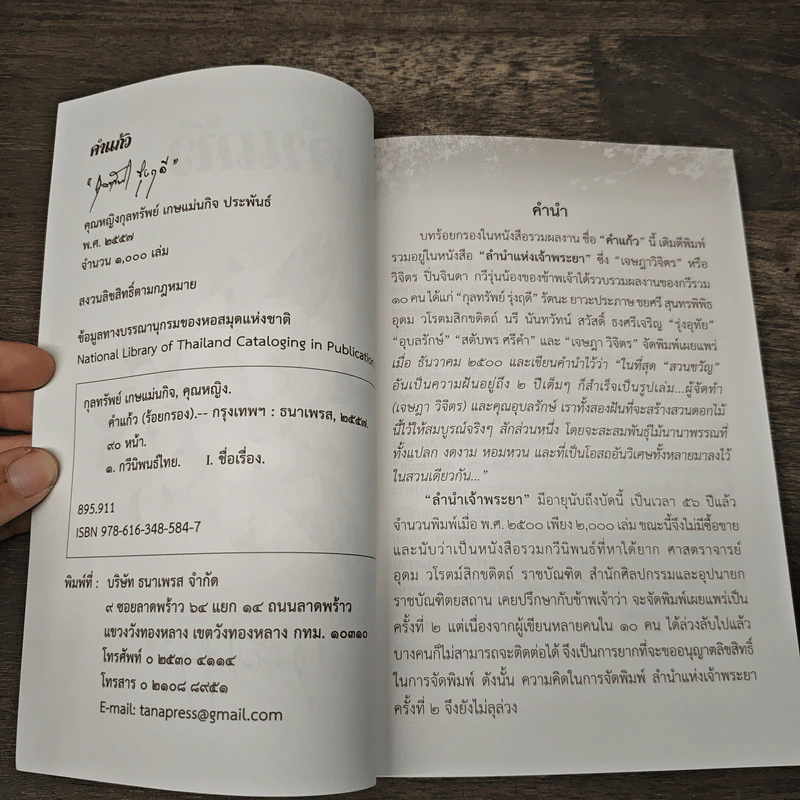 คำแก้ว
"กุลทรัพย์ รุ่งฤดี"
คุณหญิงกุลทรัพย์ เกษแม่นกิจ ประพันธ์
พ.ศ. ๒๕๕๗
จำนวน ๑,๐๐๐ เล่ม
สงวนลิขสิทธิ์ตามกฎหมาย
ข้อมูลทางบรรณานุกรมของหอสมุดแห่งชาติ
National Library of Thailand Cataloging in Publication
กุลทรัพย์ เกษแม่นกิจ, คุณหญิง.
คำแก้ว (ร้อยกรอง).-- กรุงเทพฯ : ธนาเพรส, ๒๕๕๗.
๙๐ หน้า.
๑. กวีนิพนธ์ไทย. I. ชื่อเรื่อง.
895.911
ISBN 978-616-348-584-7
พิมพ์ที่ : บริษัท ธนาเพรส จำกัด
๙ ซอยลาดพร้าว ๖๔ แยก ๑๔ ถนนลาดพร้าว
แขวงวังทองหลาง เขตวังทองหลาง กทม. ๑๐๓๑๐
โทรศัพท์ ๐ ๒๕๓๐ ๔๑๑๔
โทรสาร ๐ ๒๑๐๘ ๘๙๕๑
E-mail: tanapress@gmail.com
คำนำ
บทร้อยกรองในหนังสือรวมผลงาน ชื่อ "คำแก้ว" นี้ เดิมตีพิมพ์
รวมอยู่ในหนังสือ "ลำนำแห่งเจ้าพระยา" ซึ่ง "เจษฎาวิจิตร" หรือ
วิจิตร ปิ่นจินดา กวีรุ่นน้องของข้าพเจ้าได้รวบรวมผลงานของกวีรวม
๑๐ คน ได้แก่ "กุลทรัพย์ รุ่งฤดี" รัตนะ ยาวะประภาษ ชยศรี สุนทรพิพิธ
อุดม วโรตมสิกขดิตถ์ นรี นันทวัทน์ สวัสดิ์ ธงศรีเจริญ "รุ่งอุทัย"
"อุบลรักษ์" "สดับพร ศรีคำ" และ "เจษฎา วิจิตร" จัดพิมพ์เผยแพร่
เมื่อ ธันวาคม ๒๕๐๐ และเขียนคำนำไว้ว่า "ในที่สุด "สวนขวัญ"
อันเป็นความฝันอยู่ถึง ๒ ปีเต็มๆ ก็สำเร็จเป็นรูปเล่ม...ผู้จัดทำ
(เจษฎา วิจิตร) และคุณอุบลรักษ์ เราทั้งสองฝันที่จะสร้างสวนดอกไม้
นี้ไว้ให้สมบูรณ์จริงๆ สักส่วนหนึ่ง โดยจะสะสมพันธุ์ไม้นานาพรรณที่
ทั้งแปลก งดงาม หอมหวน และที่เป็นโอสถอันวิเศษทั้งหลายมาลงไว้
ในสวนเดียวกัน..."
"ลำนำเจ้าพระยา" มีอายุนับถึงบัดนี้ เป็นเวลา ๕๖ ปีแล้ว
จำนวนพิมพ์เมื่อ พ.ศ. ๒๕๐๐ เพียง ๒,๐๐๐ เล่ม ขณะนี้จึงไม่มีซื้อขาย
และนับว่าเป็นหนังสือรวมกวีนิพนธ์ที่หาได้ยาก ศาสตราจารย์
อุดม วโรตม์สิกขดิตถ์ ราชบัณฑิต สำนักศิลปกรรมและอุปนายก
ราชบัณฑิตยสถาน เคยปรึกษากับข้าพเจ้าว่า จะจัดพิมพ์เผยแพร่เป็น
ครั้งที่ ๒ แต่เนื่องจากผู้เขียนหลายคนใน ๑๐ คน ได้ล่วงลับไปแล้ว
บางคนก็ไม่สามารถจะติดต่อได้ จึงเป็นการยากที่จะขออนุญาตลิขสิทธิ์
ในการจัดพิมพ์ ดังนั้น ความคิดในการจัดพิมพ์ ลำนำแห่งเจ้าพระยา
ครั้งที่ ๒ จึงยังไม่ลุล่วง